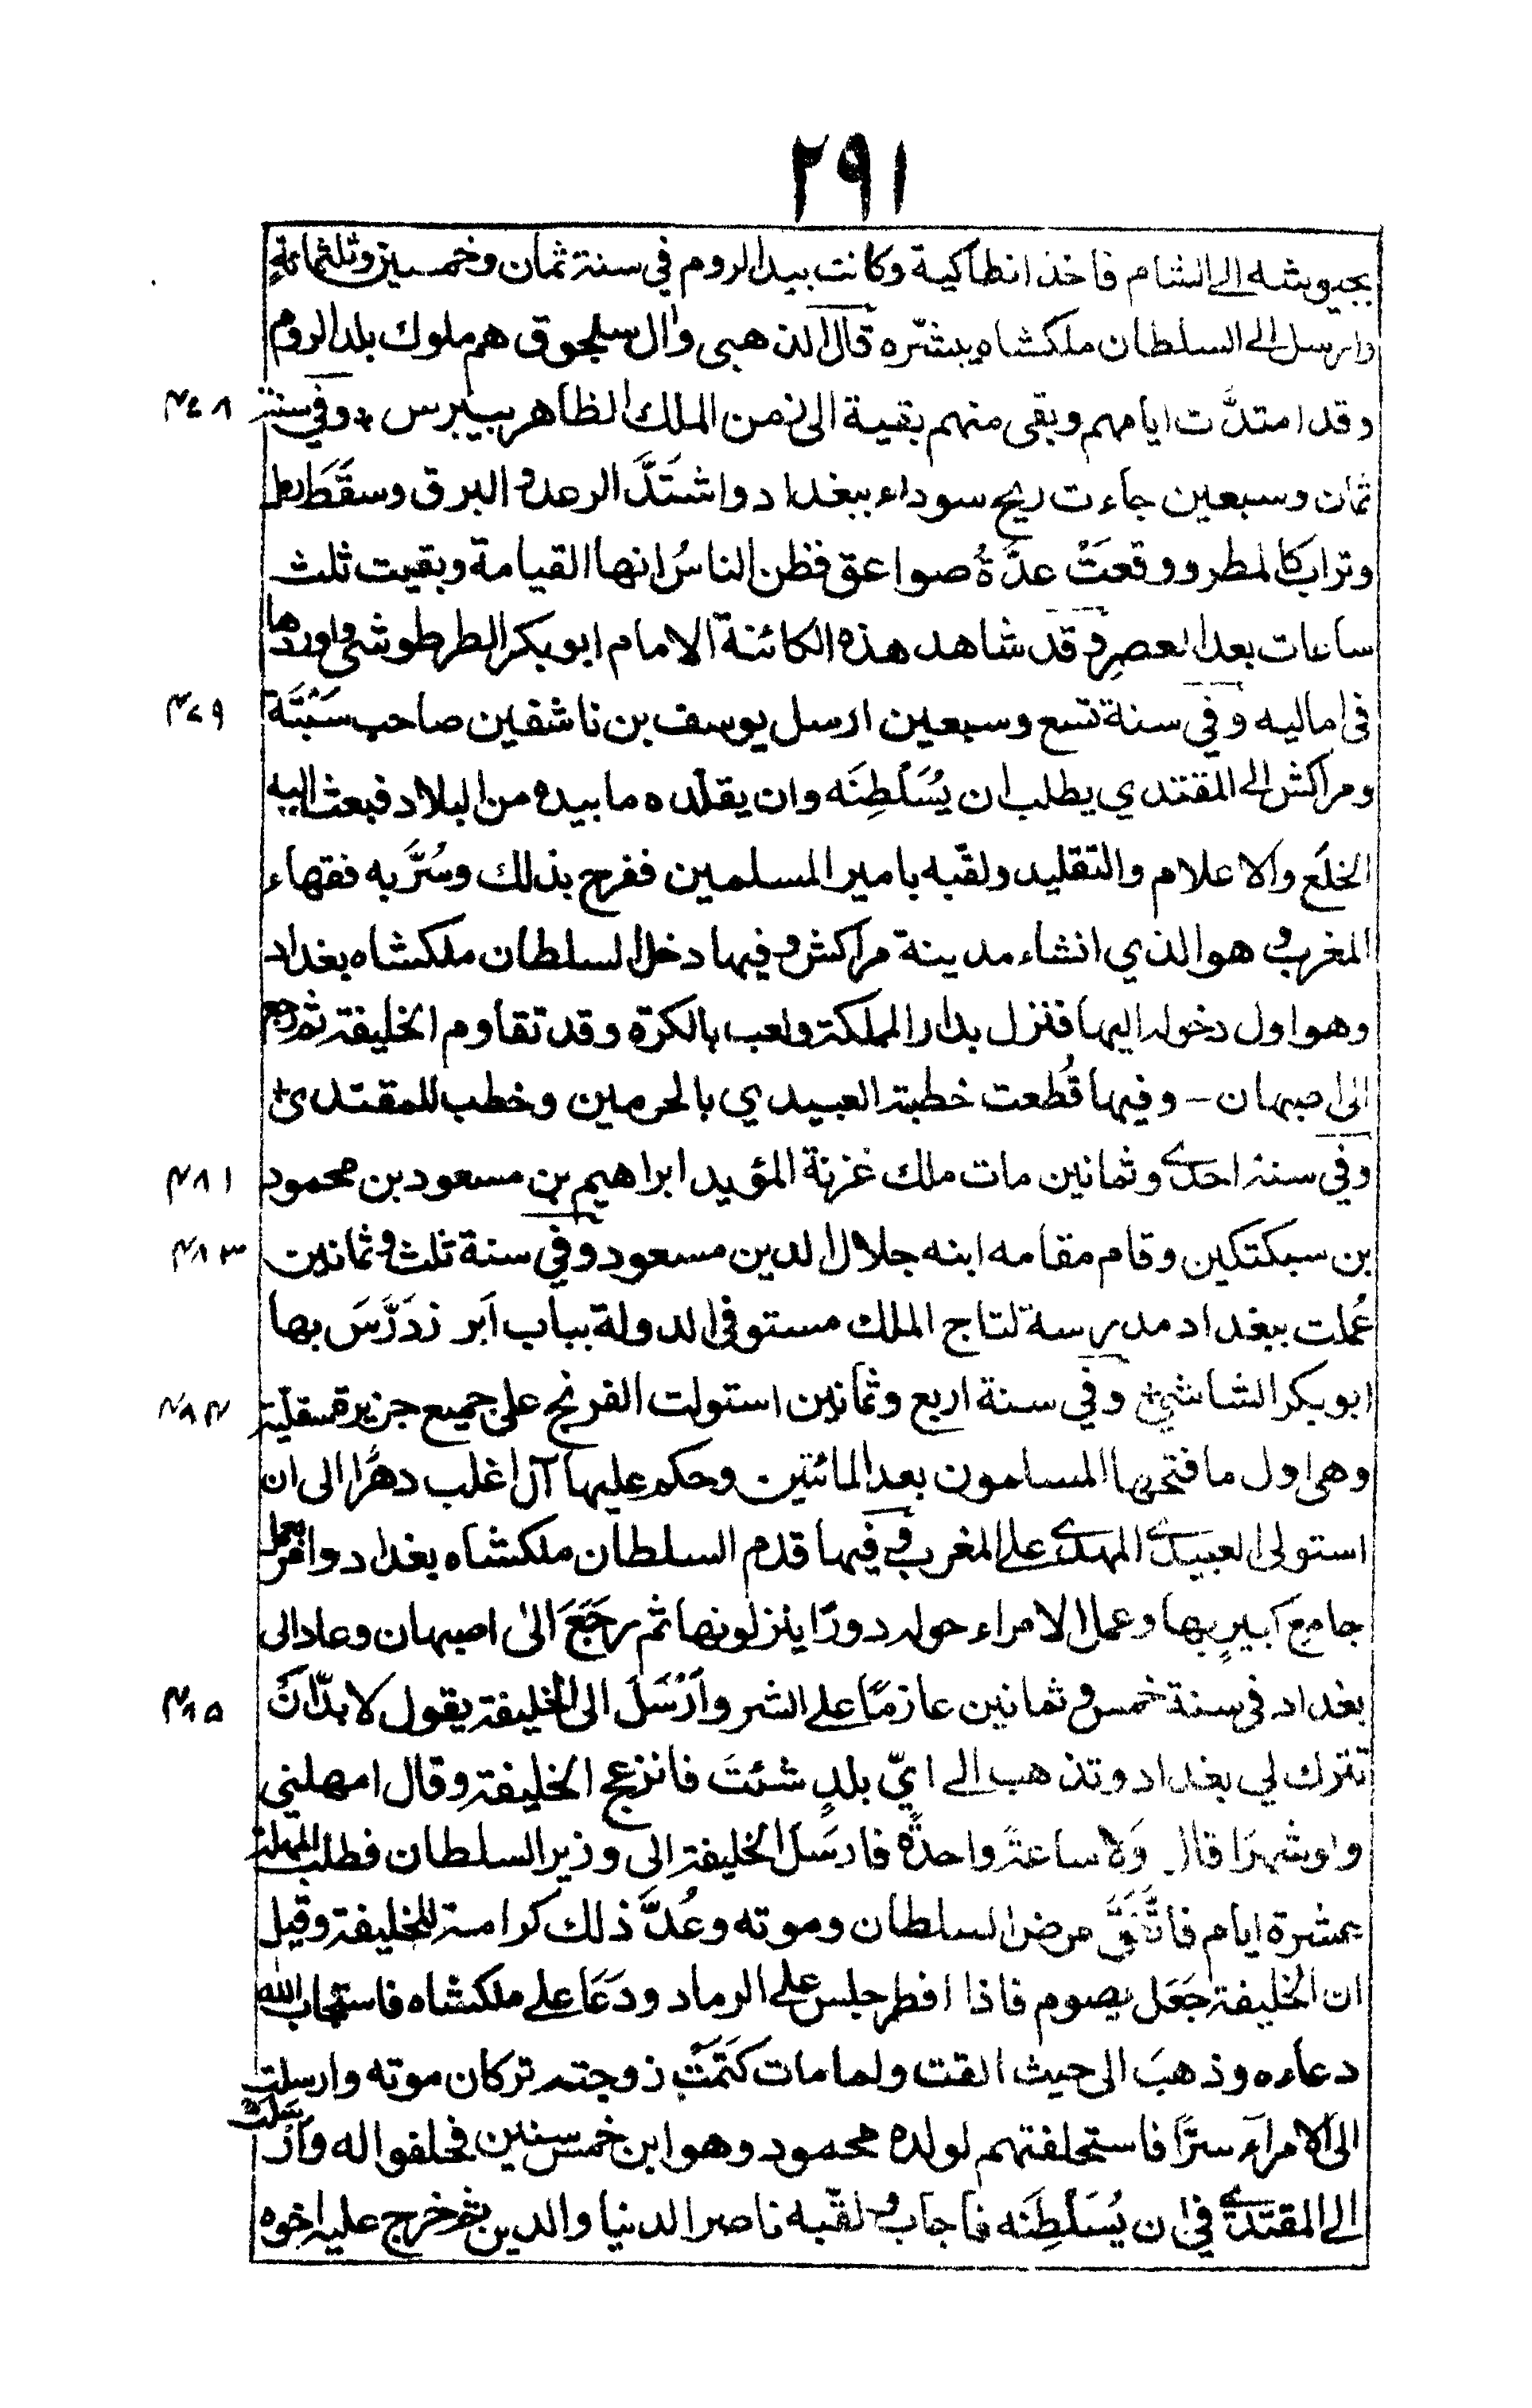 ٢٩١
بجيوشه الى الشام فاخذ انطاكية وكانت بيد الروم في سنة ثمان وخمسين وثلثمائة
وارسل الى السلطان ملكشاه يبشّره قال الذهبي وال سلجوق هم ملوك بلد الروم
وقد امتدَّت ايامهم وبقى منهم بقية الى زمن الملك الظاهر بيبرس ٭ وفي سنة ٤٧٨
ثمان وسبعين جاءت ريح سوداء ببغداد واشتَدَّ الرعد و البرق وسقَطَ رمل
وتراب كالمطر ووقعَتْ عدَّةُ صواعق فظن الناسُ انها القيامة وبقيت ثلث
ساعات بعد العصرِ و قد شاهد هذه الكائنة الامام ابو بكر الطرطوشى واوردها
فى اماليه وفي سنة تسع وسبعين ارسل يوسف بن ناشفين صاحب سَبْتَة ٤٧٩
ومراكش الى المقتدي يطلب ان يُسَلْطِنَه وان يقلّده ما بيده من البلاد فبعث اليه
الخلَع والاعلام والتقليد ولقّبه بامير المسلمين ففرح بذلك وسُرَّ به فقهاء
المغرب و هو الذي انشاء مدينة مراكش و فيها دخل السلطان ملكشاه بغداد
وهو اول دخوله اليها فنزل بدار المملكة ولعب بالكرة وقد تقاوم الخليفة ثم رجع
الى اصبهان - وفيها قُطعت خطبة العبيدي بالحرمين وخطب للمقتدى ٭
وفي سنة احدى وثمانين مات ملك غزنة المؤيد ابراهيم بن مسعود بن محمود ٤٨١
بن سبكتكين وقام مقامه ابنه جلال الدين مسعود وفي سنة ثلث وثمانين ٤٨٣
عُملت ببغداد مدرسة لتاج الملك مستوفى الدولة بباب اَبرز دَرَّسَ بها
ابو بكر الشاشي ٭ وفي سنة اربع وثمانين استولت الفرنج على جميع جزيرة سقليّة ٤٨٤
وهى اول ما فتحها المسلمون بعد المائتين وحكم عليها آل اغلب دهرًا الى ان
استولى العبيدى المهدى على المغرب و فيها قدم السلطان ملكشاه بغداد وامر بعمل
جامع كبيرٍ بها وعمل الامراء حوله دورًا ينزلونها ثم رجَعَ الى اصبهان وعاد الى
بغداد فى سنة خمس و ثمانين عازمًا على الشر وارْسَلَ الى الخليفة يقول لا بدّ اَنَ ٤٨٥
تترك لي بغداد وتذهب الى ايّ بلدٍ شئتَ فانزعج الخليفة وقال امهلني
ولو شهرًا قال وَلا ساعةً واحدةً فارسَلَ الخليفة الى وزير السلطان فطلب المهلة
عشرة ايام فاتَّفَقَ مرض السلطان وموته وعُدَّ ذلك كرامة للخليفة وقيل
ان الخليفة جَعَل يصوم فاذا افطر جلس على الرماد ودَعَا على ملكشاه فاستجاب الله
دعاءه وذهبَ الى حيث القت ولما مات كَتَمَتْ زوجته تركان موته وارسلت
الى الامراء سرًّا فاستحلفتهم لولده محمود وهو ابن خمس سنين فحلفوا له وارْسَلَتْ
الى المقتدى في ان يُسَلْطِنَه فاجاب و لقّبه ناصر الدنيا والدين ثم خرج عليه اخوه